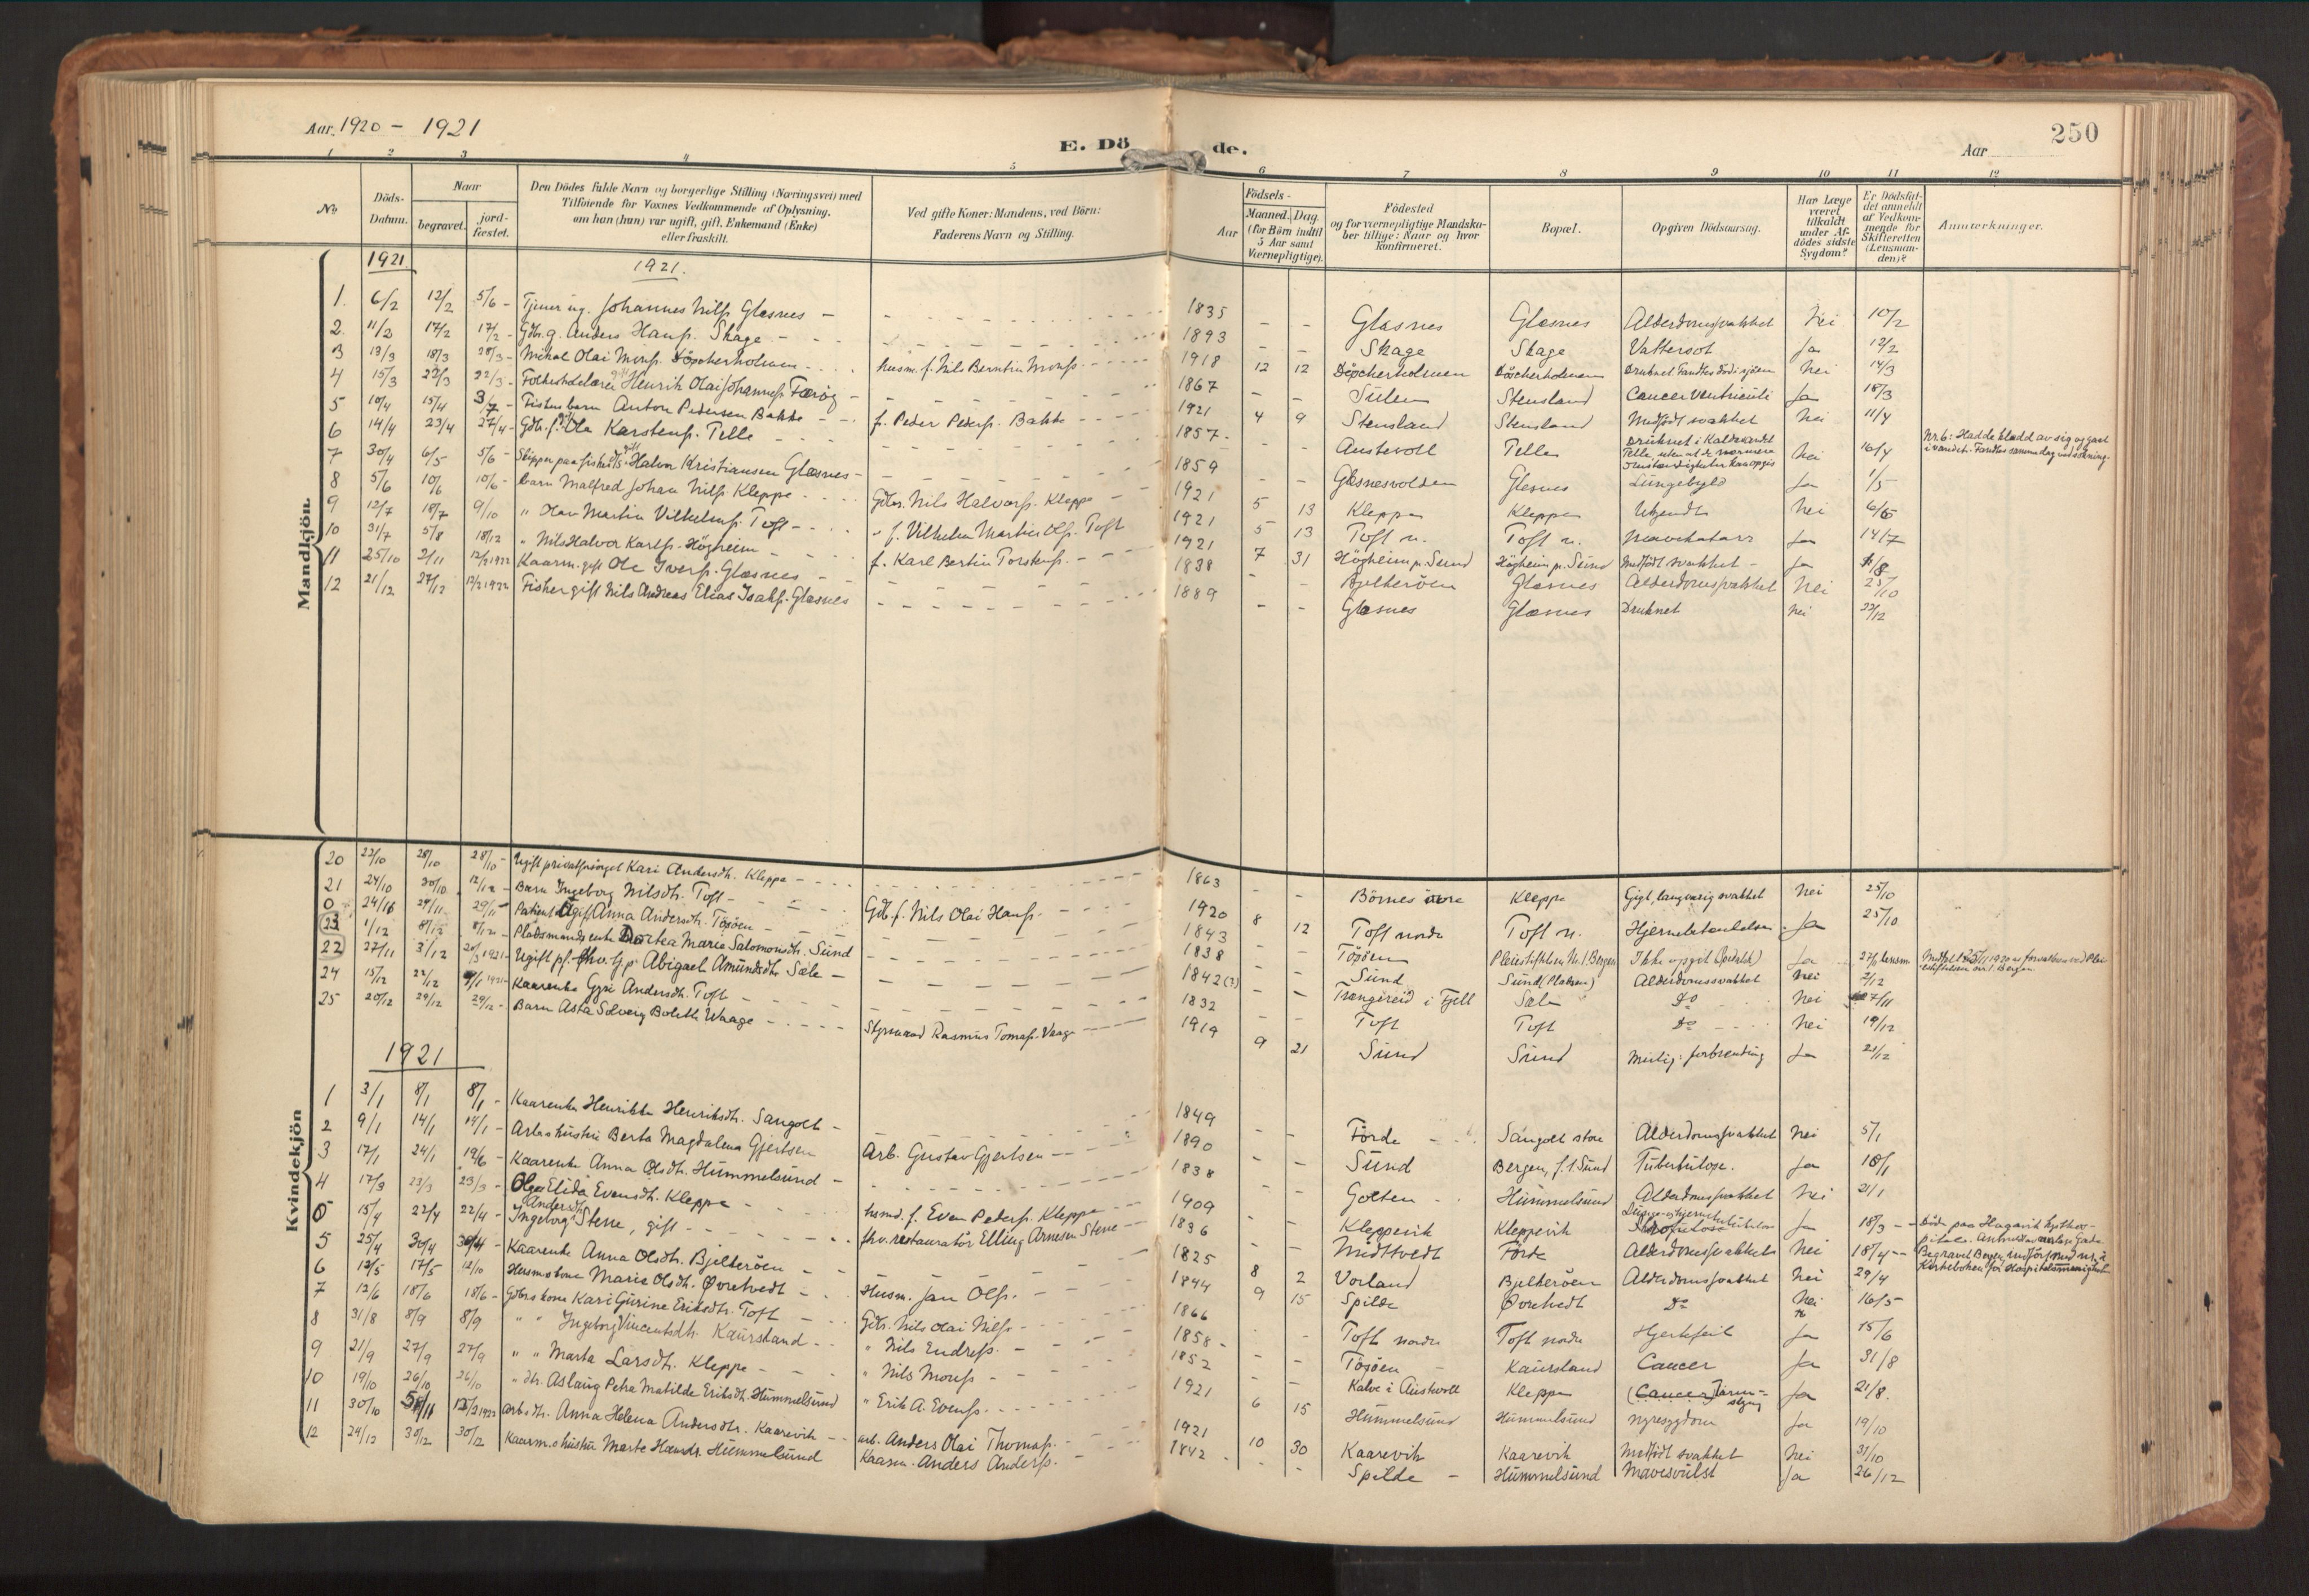 Aar 1920 - 1921
E. Dö de.
Aar
250
1 2 3 4 5 6 7 8 9 10 11 12
No
Döds-Datum.
Naar
begravet.
jord-fæstet.
Den Dödes fulde Navn og borgerlige Stilling (Næringsvei) med
Tilföiende for Voxnes Vedkommende af Oplysning,
om han (hun) var ugift, gift, Enkemand (Enke)
eller fraskilt.
Ved gifte Koner: Mandens, ved Börn:
Faderens Navn og Stilling.
Aar
Födsels-
Maaned. Dag.
(for Börn indtil
5 Aar samt
Værnepligtige).
Födested
og for værnepligtige Mandska-
ber tillige: Naar og hvor
konfirmeret.
Bopæl.
Opgiven Dödsaarsag.
Har Læge
været
tilkaldt
under Af-
dödes sidste
Sygdom?
Er Dödsfal-
det anmeldt
af Vedkom-
mende for
Skifteretten
(Lensman-
den)?
Anmærkninger.
Mandkjön.
1921 1921.
1. 6/2 12/2 5/6 - Tjener ug. Johannes Nilss. Glæsnes - 1835 - - Glæsnes Glæsnes Alderdomssvakhet Nei 10/2
2. 11/2 17/2 17/2 - Gdbr. g. Anders Hanss. Skage - 1893 - - Skage Skage Vattersot Ja 12/2
3 13/3 18/3 28/3 - Mikal Olai Monss. Döscherholmen husm. f. Nils Berntin Monss. 1918 12 12 Döscherholmen Döscherholmen Druknet Fandtes död i sjöen Nei 14/3
4 15/3 22/3 22/3 - Folkeskolelærer gift Henrik Olai Johanness. Færöy - 1867 - - Sulen Stensland Cancer ventriculi Ja 18/3
5 10/4 15/4 3/7 - Fiskers barn Anton Pedersen Bakke f. Peder Peders. Bakke 1921 4 9 Stensland Stensland Medfödt svakhet Nei 11/4
6 14/4 23/4 27/4 - Gdbr. f. gift Ola Karstens. Telle 1857 - - Austevoll Telle Druknet i Kaldevandet
Telle, uten at de nærmere
omstændigheter kan opgis Nei 16/4 Nr. 6: Hadde klædd av sig og gaat
i vandet. Fandtes samme dag ved sökning.
7 30/4 6/5 5/6 - Skipper paa fiskedamps. gift Halvor Kristiansen Glæsnes - 1859 - - Glæsnesvolden Glæsnes Lungebyld Ja 1/5
8 5/6 10/6 10/6 - barn Malfred Johan Nilss. Kleppe Gdbr. Nils Halvors. Kleppe 1921 5 13 Kleppe Kleppe Ukjendt Nei 6/6
9 12/7 18/7 9/10 " Olav Martin Vilhelms. Toft " f. Vilhelm Martin Ols. Toft 1921 5 13 Toft n. Toft n. Mavekatarr Ja 14/7
10 31/7 5/8 18/12 " Nils Halvor Karls. Högheim f. Karl Bertin Torstens. 1921 7 31 Högheim p. Sund Högheim p. Sund Medfödt svakhet - Ja 1/8
11 25/10 2/11 12/2 1922 Kaarm. gift Ole Ivers. Glæsnes 1838 - - Bjelteröen Glæsnes Alderdomssvakhet Nei 25/10
12 21/12 27/12 12/2 1922 Fisker gift Nils Andreas Elias Isaks. Glæsnes 1889 - - Glæsnes Glæsnes Druknet Nei 22/12
Kvindekjön
20 23/10 28/10 28/10 - Ugift privatforsörget Kari Andersdtr. Kleppe 1863 - - Börnes övre Kleppe Gigt, langvarig svakhet Nei 25/10
21 24/10 30/10 12/12 - Barn Ingeborg Nilsdtr. Toft Gdb. f. Nils Olai Hans. 1920 8 12 Toft nordre Toft n. Hjernebetændelse Ja 25/10
0 24/11 29/11 29/11 Patient Ugift Anna Andersdtr. Tösöen 1843 - - Tösöen Pleiestiftelsen Nr. 1. Bergen Ikke opgit (Spedalsk) Ja 27/11 lensm.
23 1/12 8/12 8/12 - Pladsmands enke Dortea Marie Salomonsdtr. Sund 1838 - - Sund Sund (Pladsen) Alderdomssvakhet Nei 2/12
22 27/11 3/12 20/3 1921 - Ugift pf. fhv. tj. p. Abigael Amundsdtr Sæle - 1842 (?) - - Trængereid i Fjell Sæle Do Nei 27/11
24 15/12 22/12 1/1 1921 - Kaarenke Gyri Andersdtr. Toft 1832 - - Toft Toft Do Nei 19/12
25 20/12 29/12 29/12 - Barn Asta Solveig Bolette Waage - Styrmand Rasmus Tomass. Vaage 1919 9 21 Sund Sund forbrænding Ja 21/12
1921
1 3/1 8/1 8/1 - Kaarenke Henrikka Henriksdtr. Sangolt - 1849 - - Förde Sangolt store Alderdomssvakhet Nei 5/1
2 9/1 14/1 14/1 - Arb.s hustru Berta Magdalena Gjertsen Arb. Gustav Gjertsen 1890 - - Sund Bergen, f. i Sund Tuberkulose. Ja 18/1
3 17/1 24/1 19/6 - Kaarenke Anna Olsdtr. Hummelsund - 1838 - - Golten Hummelsund Alderdomssvakhet Nei 21/1
4 17/3 23/3 23/3 - Olga Elida Evensdtr. Kleppe husmd. f. Even Peders. Kleppe 1909 - - Kleppevik Kleppevik Ja 18/3 - Döde paa Hagavik kysthos-
0 15/4 22/4 22/4 - Ingeborg Andersdtr. Stene, gift - fhv. restauratör Elling Arnesen Stene 1836 - - Midttvedt Förde Alderdomssvakhet Nei 18/4 - Begravet Bergen
5 25/4 30/4 30/4 - Kaarenke Anna Olsdtr. Bjelteröen 1825 8 2 Vorland Bjelteröen Alderdomssvakhet Nei 29/4
6 12/5 17/5 12/10 Husm.s kone Marie Olsdtr. Øvretvedt Husm. Jan Ols. 1844 9 15 Spilde Øvretvedt Do Nei 16/5
7 12/6 18/6 18/6 - Gdbrs kone Kari Gurine Eriksdtr. Toft Gdb. Nils Olai Nilss. 1866 - - Toft nordre Toft nordre Hjertefeil Ja 15/6
8 31/8 8/9 8/9 " " Ingeborg Vincentsdtr. Kaursland " Nils Endress. 1858 - - Tösöen Kaursland Cancer Ja 31/8
9 21/9 27/9 27/9 " " Marta Larsdtr. Kleppe " Nils Monss. 1852 - - Kalve i Austevoll Kleppe (Cancer) Ja 21/8.
10 19/10 26/10 26/10 " dtr. Aslaug Petra Matilde Eriksdtr. Hummelsund " Erik A. Evens. 1921 6 15 Hummelsund Hummelsund nyresygdom Ja 19/10
11 30/10 5/11 12/2 1922 arbs dtr. Anna Helena Andersdtr. Kaarevik arb. Anders Olai Thomas. 1921 10 30 Kaarevik Kaarevik Medfödt svakhet Nei 31/10
12 24/12 30/12 30/12 Kaarm.s hustru Marte Hansdr. Hummelsund Kaarm. Anders Anders. 1842 - - Spilde Hummelsund Mavesvulst Ja 26/12